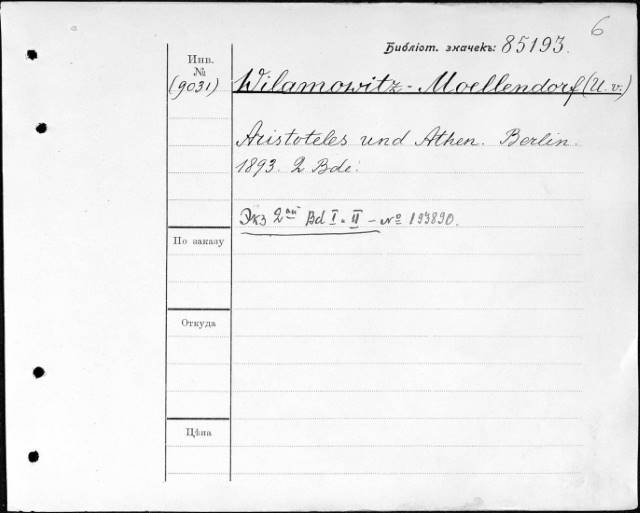 6
Библіот. значекъ: 85193.
Инв.
№
(9031)
Wilamowitz-Moellendorf (U. v.)
Aristoteles und Athen. Berlin.
1893. 2 Bde.
Экз 2ой Bd I - II - № 193890.
По заказу
Откуда
Цѣна